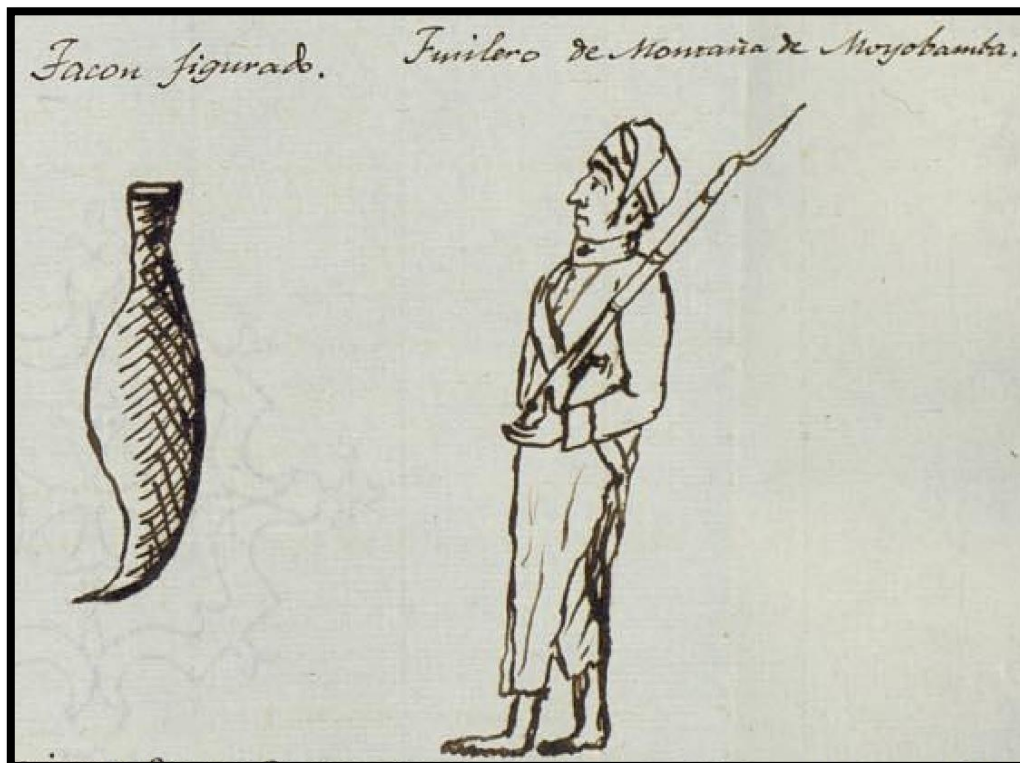 Facon figurado.
Fusilero de Montaña de Moyobamba.